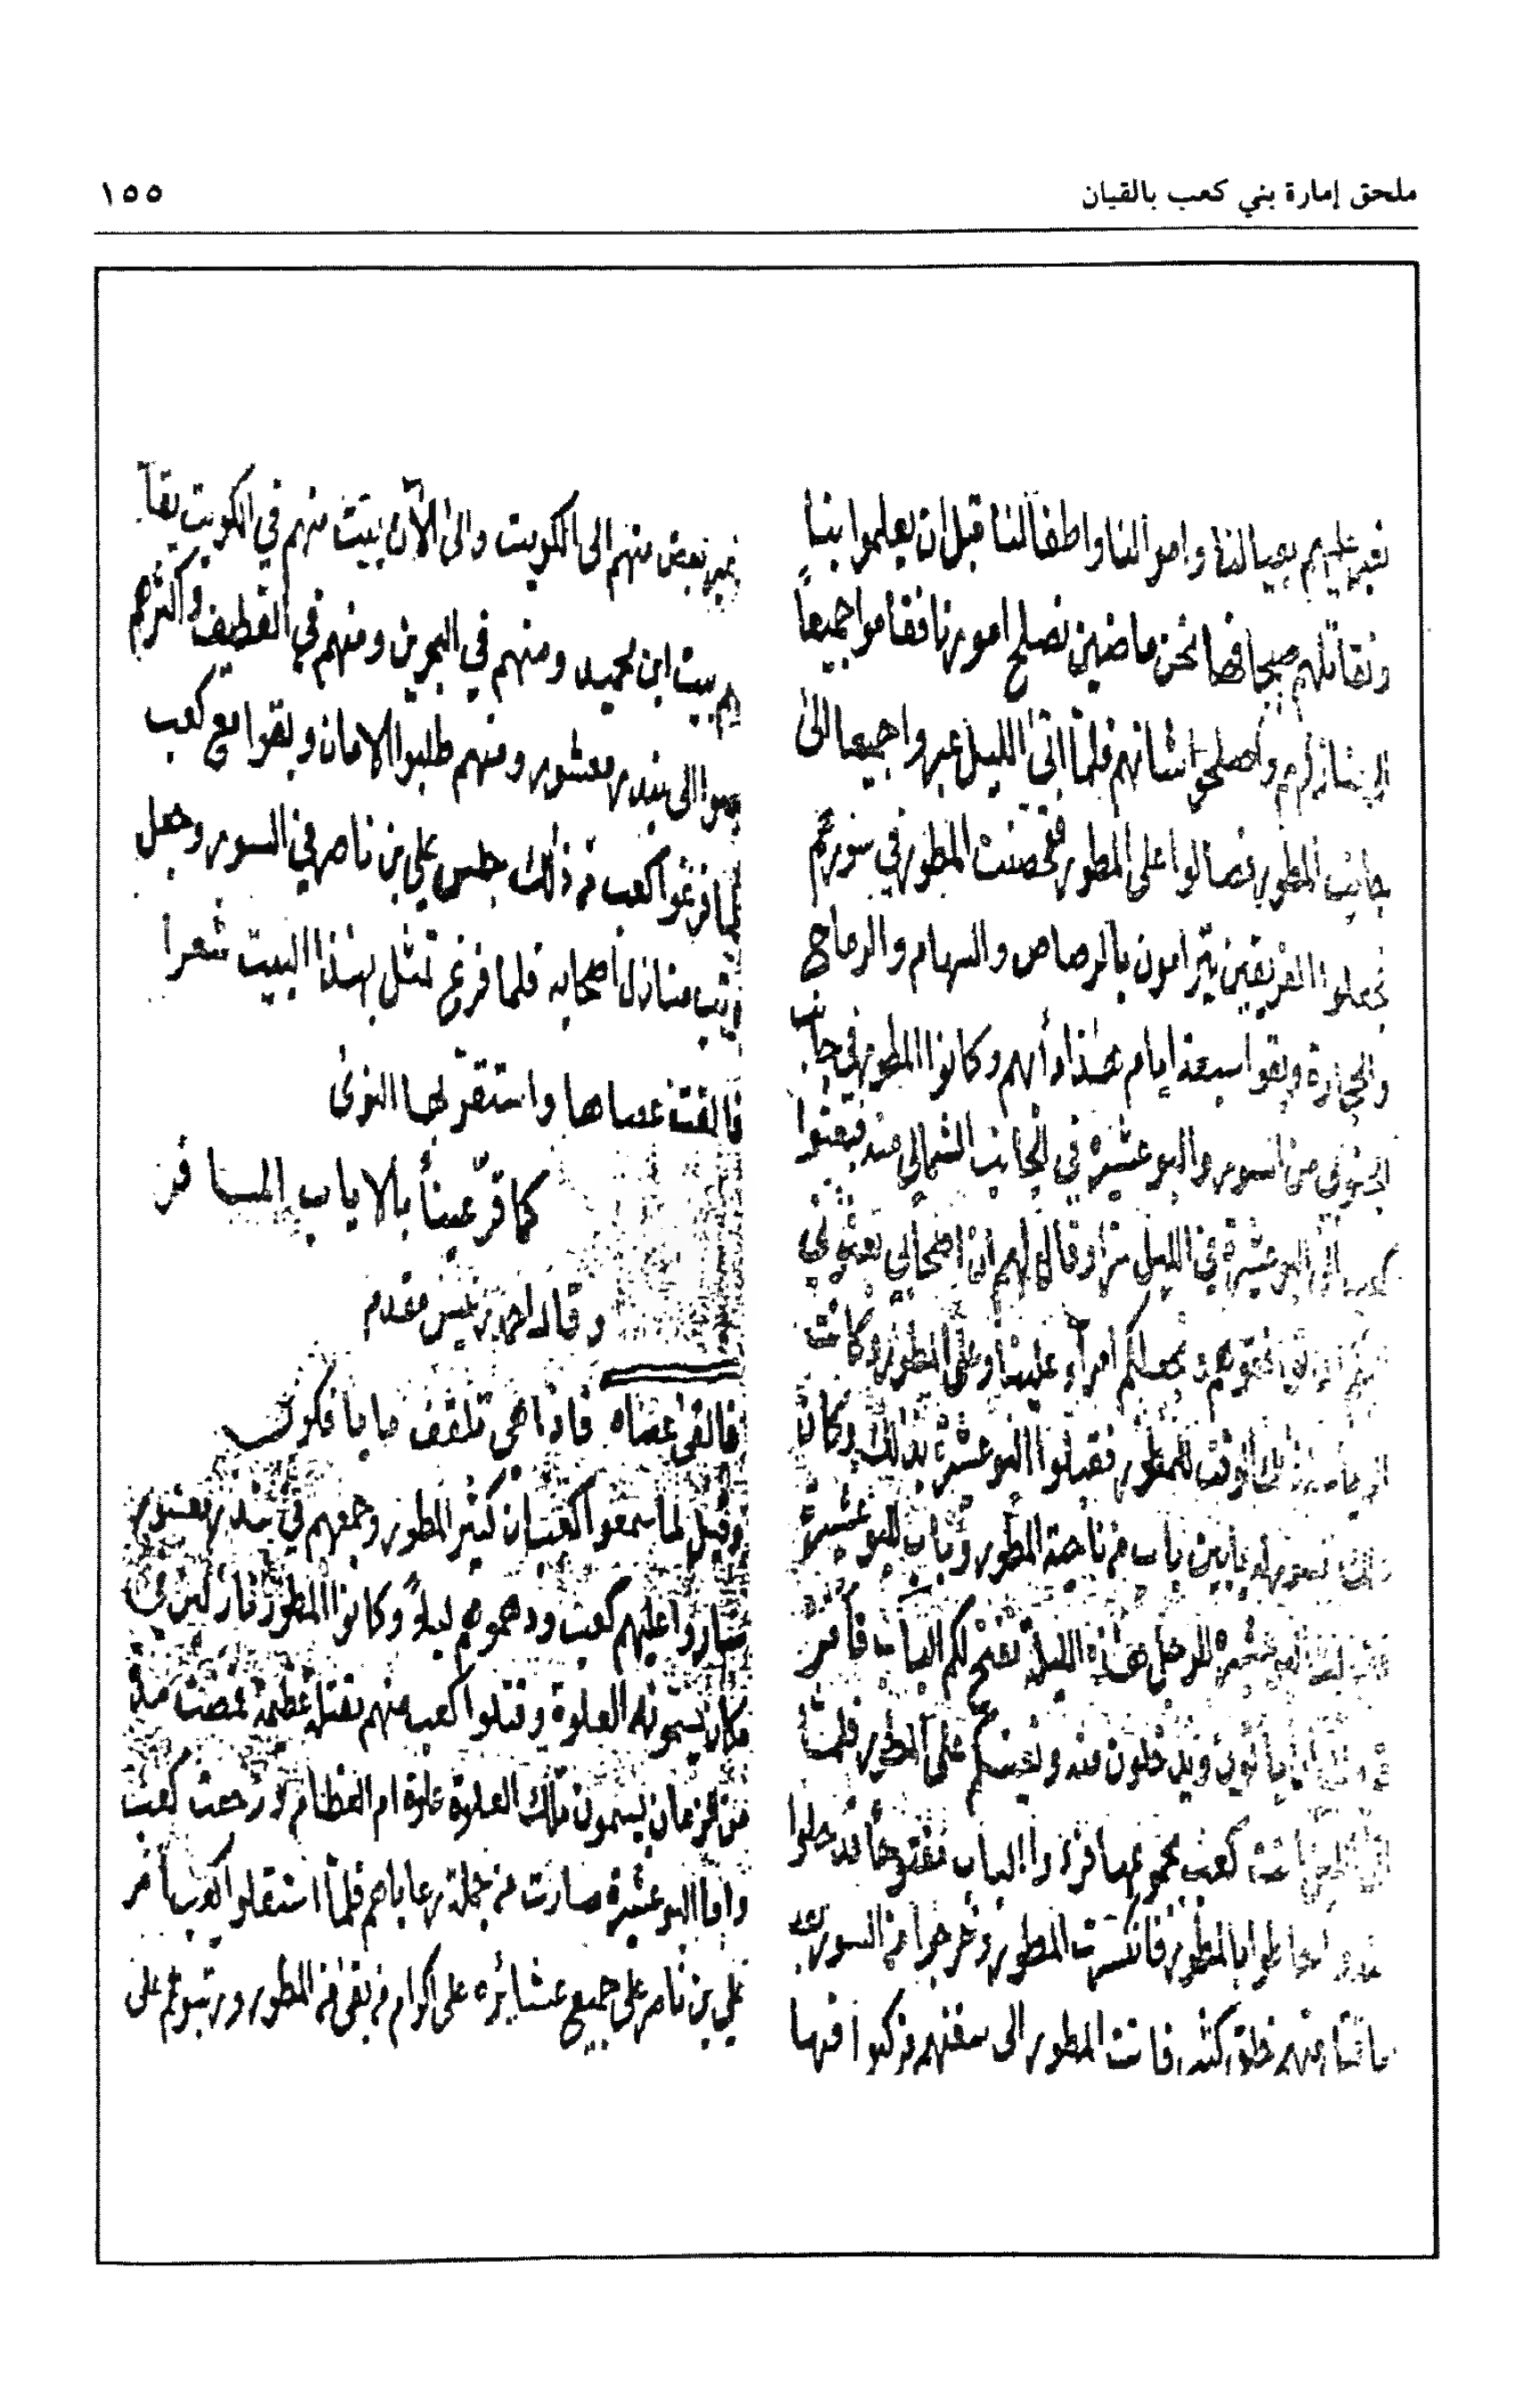 ملحق إمارة بني كعب بالقيان
١٥٥
نعبر عليهم بعيالنا واموالنا واطفالنا قبل ان يعلموا بنا
ونقاتلهم صحافها نحن ماضين نصلح امورنا فقاموا جميعاً
الى منازلهم واصلحوا شانهم فلما اتى الليل عبروا جميعا الى
جانب المطور فصالوا على المطور فتحصنت المطور في سورهم
فجعلوا الفريقين يترامون بالرصاص والسهام والرماح
والحجارة وبقوا سبعة ايام هذا دأبهم وكانوا المطور في جانب
الجنوبي من السور والبو عشيرة في الجانب الشمالي منه فبعثوا
كعب الى البو عشيرة في الليل سرا وقالوا لهم ان اصحابي بعثوني
امراء علينا وعلى المطور وكانت
الوقت للمطور فقبلوا البو عشيرة بذلك وكان
بابين باب من ناحية المطور وباب للبو عشيرة
البو عشيرة للرجل هذه الليلة نفتح لكم الباب فأمر
يأتون ويدخلون منه ونعينكم على المطور فلما
اتى الليل كعب بجموعها فرأوا الباب مفتوحاً فدخلوا
احاطوا بالمطور فانكسرت المطور وأخرجوا من السور
منهم خلق كثير فاتت المطور الى سفنهم فركبوا فيها
بعض منهم الى الكويت والى الآن بيت منهم في الكويت يقا
لهم بيت ابن محميد ومنهم في البحرين ومنهم في القطيف واكثرهم
الى بندر معشور ومنهم طلبوا الامان وبقوا مع كعب
لما فرغوا كعب من ذلك جلس علي بن ناصر في السور وجعل
ورتب منازل اصحابه فلما فرغ تمثل بهذا البيت شعرا
فالقت عصاها واستقر لها النوى
كما قرّ عيناً بالاياب المسافر
وقال احمد بن عيسى مقدم
فالقى عصاه فاذا هي تلقف ما يافكون
وقيل لما سمعوا كعب ان كثير المطور وجمعهم في بندر معشور
ساروا عليهم كعب ودهموهم ليلاً وكانوا المطور نازلين في
مكان يسمونه العلوة وقتلوا كعب منهم مقتلة عظيمة فمضت مدة
من الزمان يسمون تلك العلوة علوة ام العظام ورجعت كعب
واما البو عشيرة صارت من جملة رعاياهم فلما استقلوا كعب امر
علي بن ناصر على جميع عشايره على اكرام من بقى من المطور ورتبوهم على